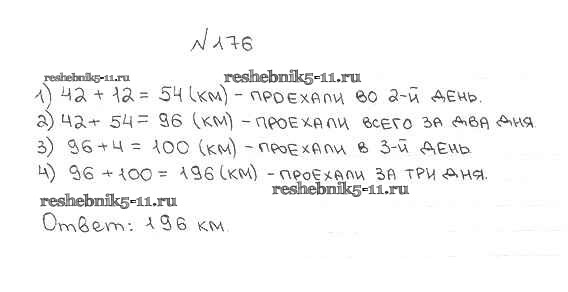 №176
reshebnik5-11.ru reshebnik5-11.ru
1) 42 + 12 = 54 (км) - проехали во 2-й день.
2) 42 + 54 = 96 (км) - проехали всего за два дня
3) 96 + 4 = 100 (км) - проехали в 3-й день
4) 96 + 100 = 196 (км) - проехали за три дня.
reshebnik5-11.ru reshebnik5-11.ru
Ответ: 196 км.